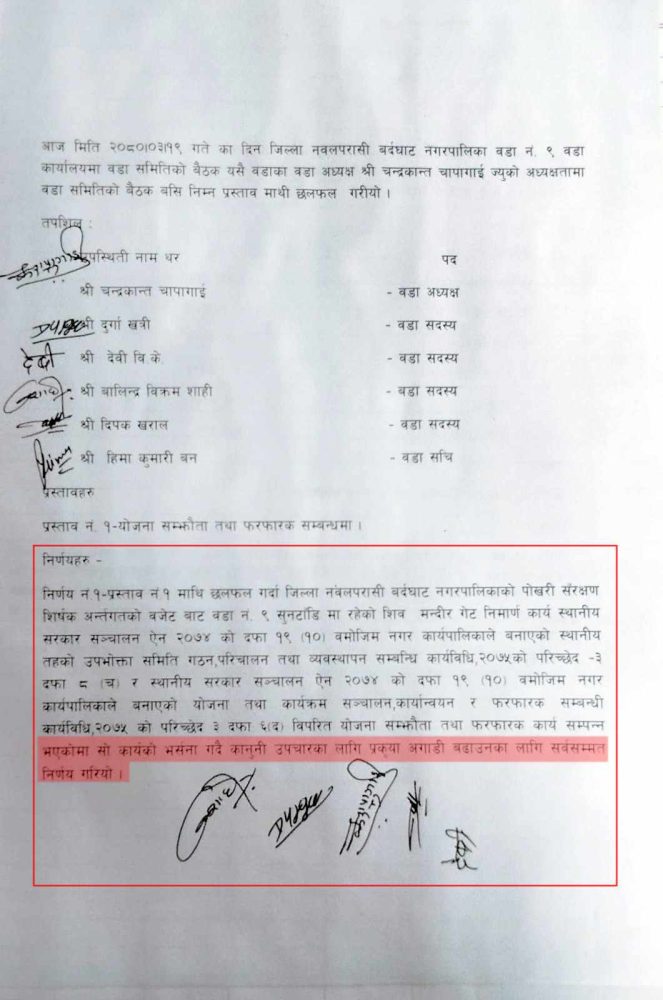 आज मिति २०८०।०३।१९ गते का दिन जिल्ला नवलपरासी बर्दघाट नगरपालिका वडा नं. ९ वडा
कार्यालयमा वडा समितिको बैठक यसै वडाका वडा अध्यक्ष श्री चन्द्रकान्त चापागाई ज्युको अध्यक्षतामा
वडा समितिको बैठक बसि निम्न प्रस्ताव माथी छलफल गरीयो ।
तपशिल :
उपस्थिती नाम थर पद
श्री चन्द्रकान्त चापागाई - वडा अध्यक्ष
श्री दुर्गा खत्री - वडा सदस्य
देवी श्री देवी वि.के. - वडा सदस्य
श्री बालिन्द्र विक्रम शाही - वडा सदस्य
श्री दिपक खराल - वडा सदस्य
श्री हिमा कुमारी बन - वडा सचि
प्रस्तावहरु
प्रस्ताव नं. १-योजना सम्झौता तथा फरफारक सम्बन्धमा ।
निर्णयहरु -
निर्णय नं.१-प्रस्ताव नं.१ माथि छलफल गर्दा जिल्ला नवलपरासी बर्दघाट नगरपालिकाको पोखरी सँरक्षण
शिर्षक अर्न्तगतको बजेट बाट वडा नं. ९ सुनटाँडि मा रहेको शिव मन्दीर गेट निमार्ण कार्य स्थानीय
सरकार सञ्चालन ऐन २०७४ को दफा १९ (१०) वमोजिम नगर कार्यपालिकाले बनाएको स्थानीय
तहको उपभोक्ता समिति गठन,परिचालन तथा व्यवस्थापन सम्बन्धि कार्यविधि,२०७५को परिच्छेद -३
दफा ८ (च) र स्थानीय सरकार सञ्चालन ऐन २०७४ को दफा १९ (१०) वमोजिम नगर
कार्यपालिकाले बनाएको योजना तथा कार्यक्रम सञ्चालन,कार्यान्वयन र फरफारक सम्बन्धी
कार्यविधि,२०७५ को परिच्छेद ३ दफा ६(द) विपरित योजना सम्झौता तथा फरफारक कार्य सम्पन्न
भएकोमा सो कार्यको भर्सना गर्दै कानुनी उपचारका लागि प्रकृया अगाडी बढाउनका लागि सर्वसम्मत
निर्णय गरियो ।